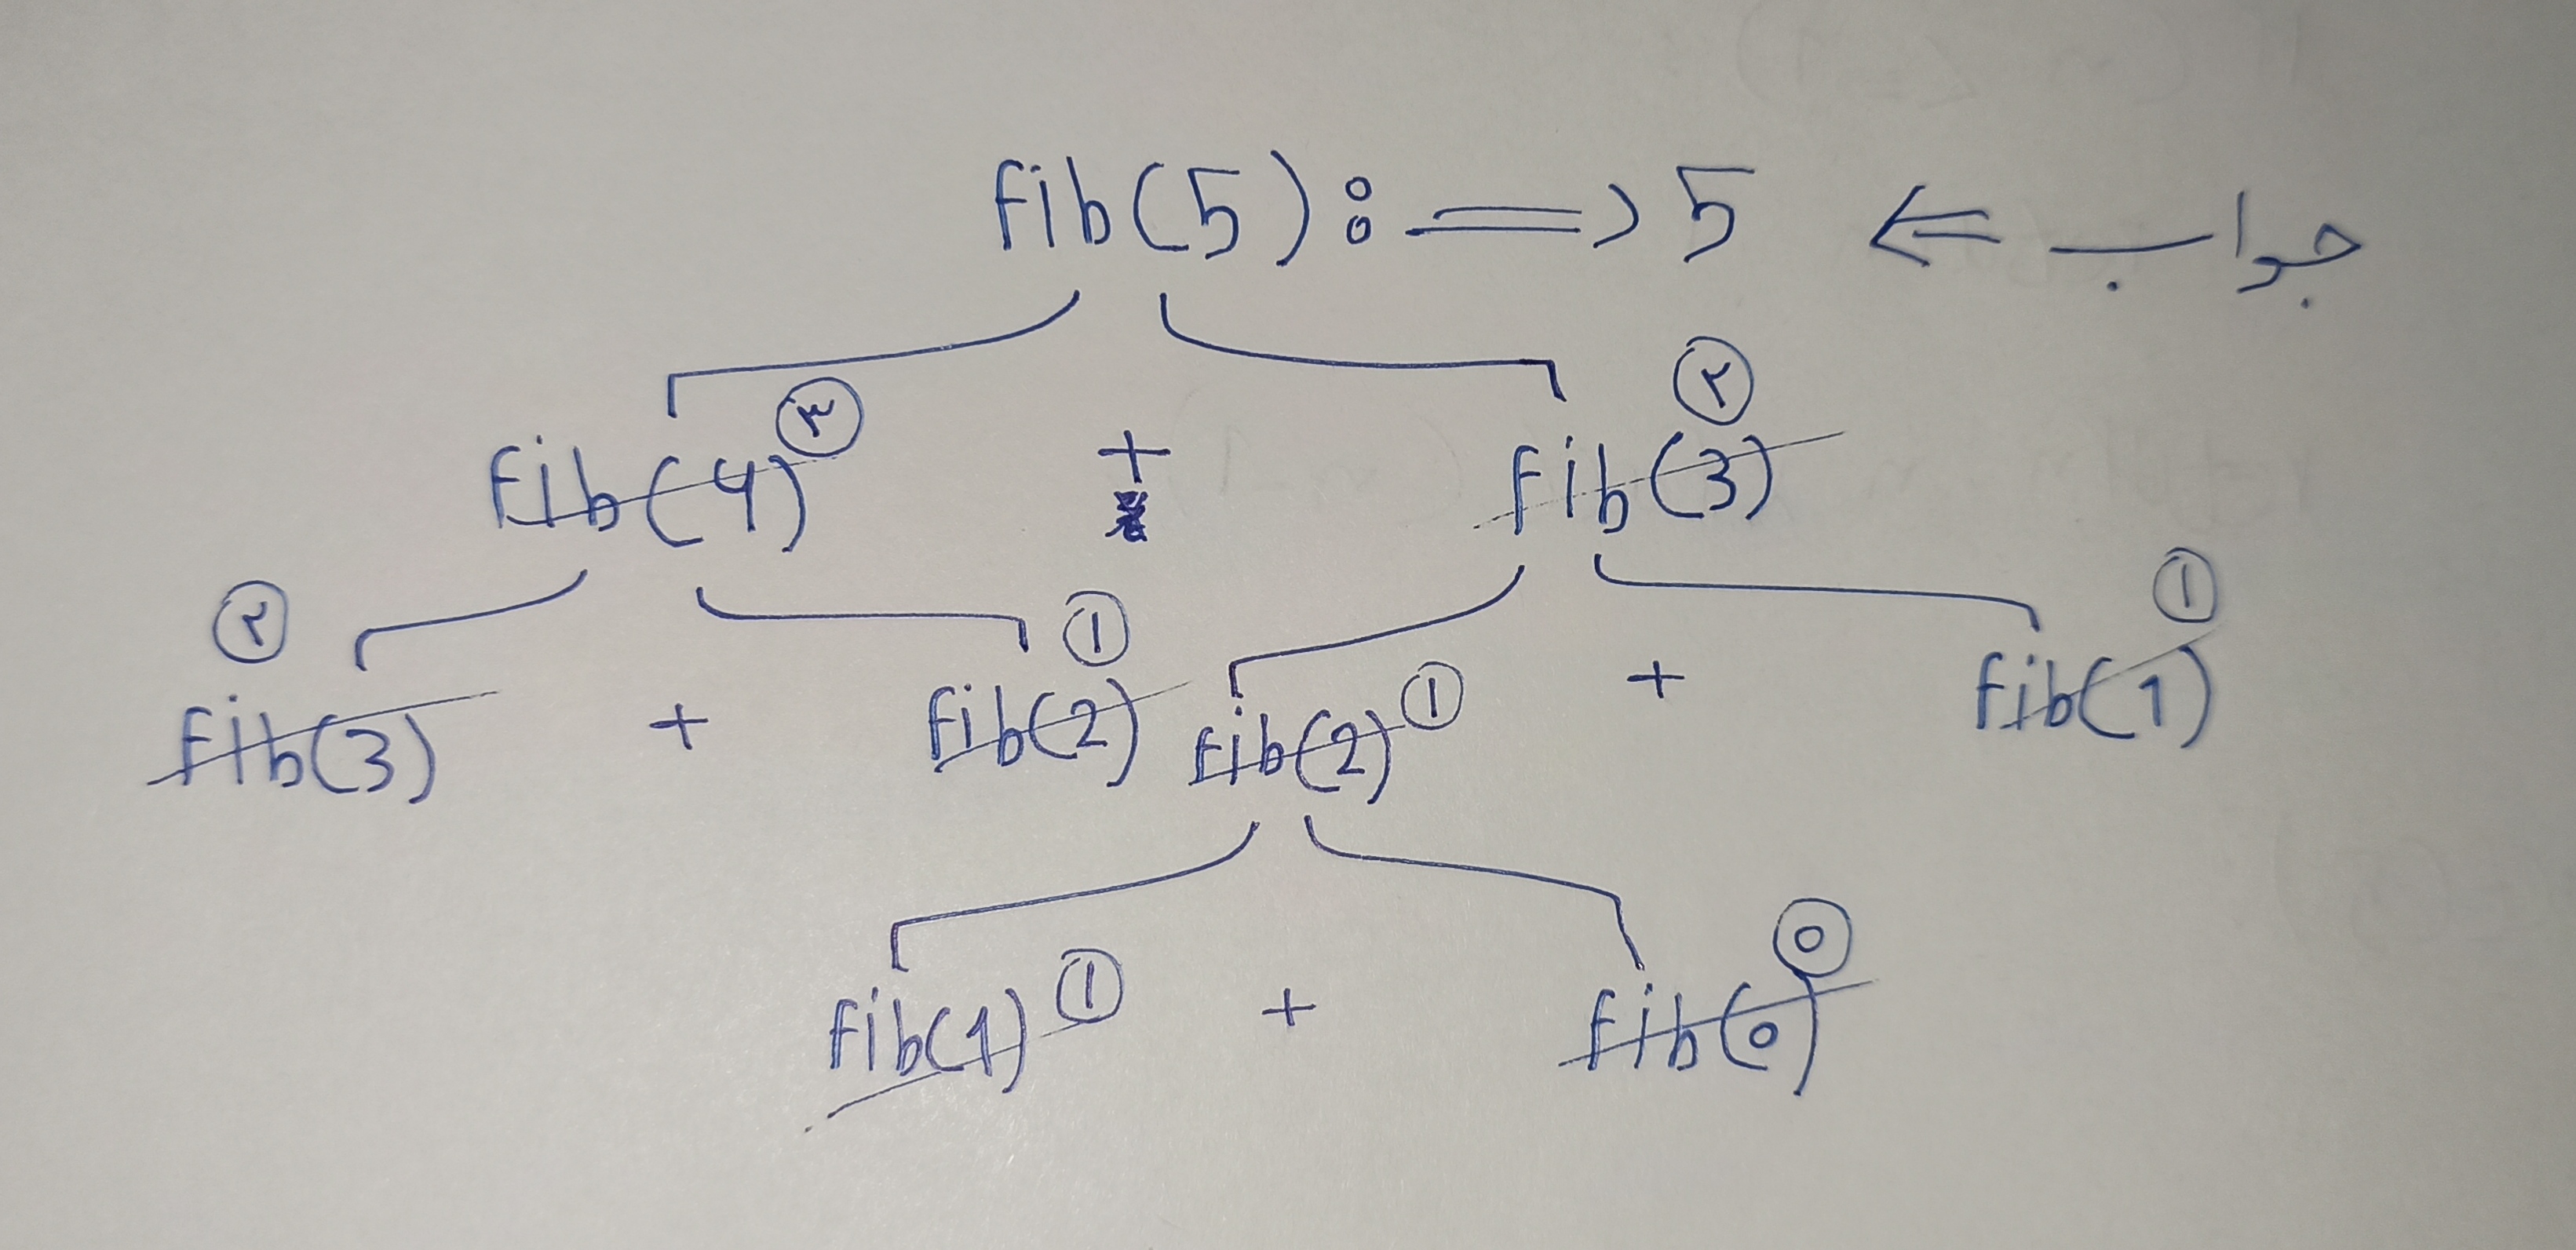 fib(5): => 5 <= جواب
fib(4) ۳ + fib(3) ۲
fib(3) ۲ + fib(2) ۱ fib(2) ۱ + fib(1) ۱
fib(1) ۱ + fib(0) 0